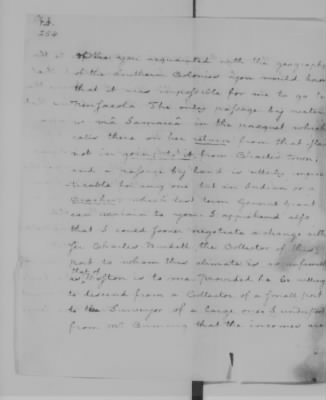 254
you acquainted with the geography
of the Southern Colonies you would know
that it was impossible for me to go to
Pensacola The only passage by water
is via Jamaica in the paquet which
calls there on her return from that place
not in going to it from Charles town,
and a passage by land is utterly impra
ticable for any one but an Indian or a
which last term Governor Grant
can explain to you. I apprehend also
that I could sooner negotiate a change with
the Collector of this
port to whom this climate is as
as is to me provided he be willing
to descend from a Collector of a small port
to the Surveyor of a large one I understand
from Mr that the incomes are